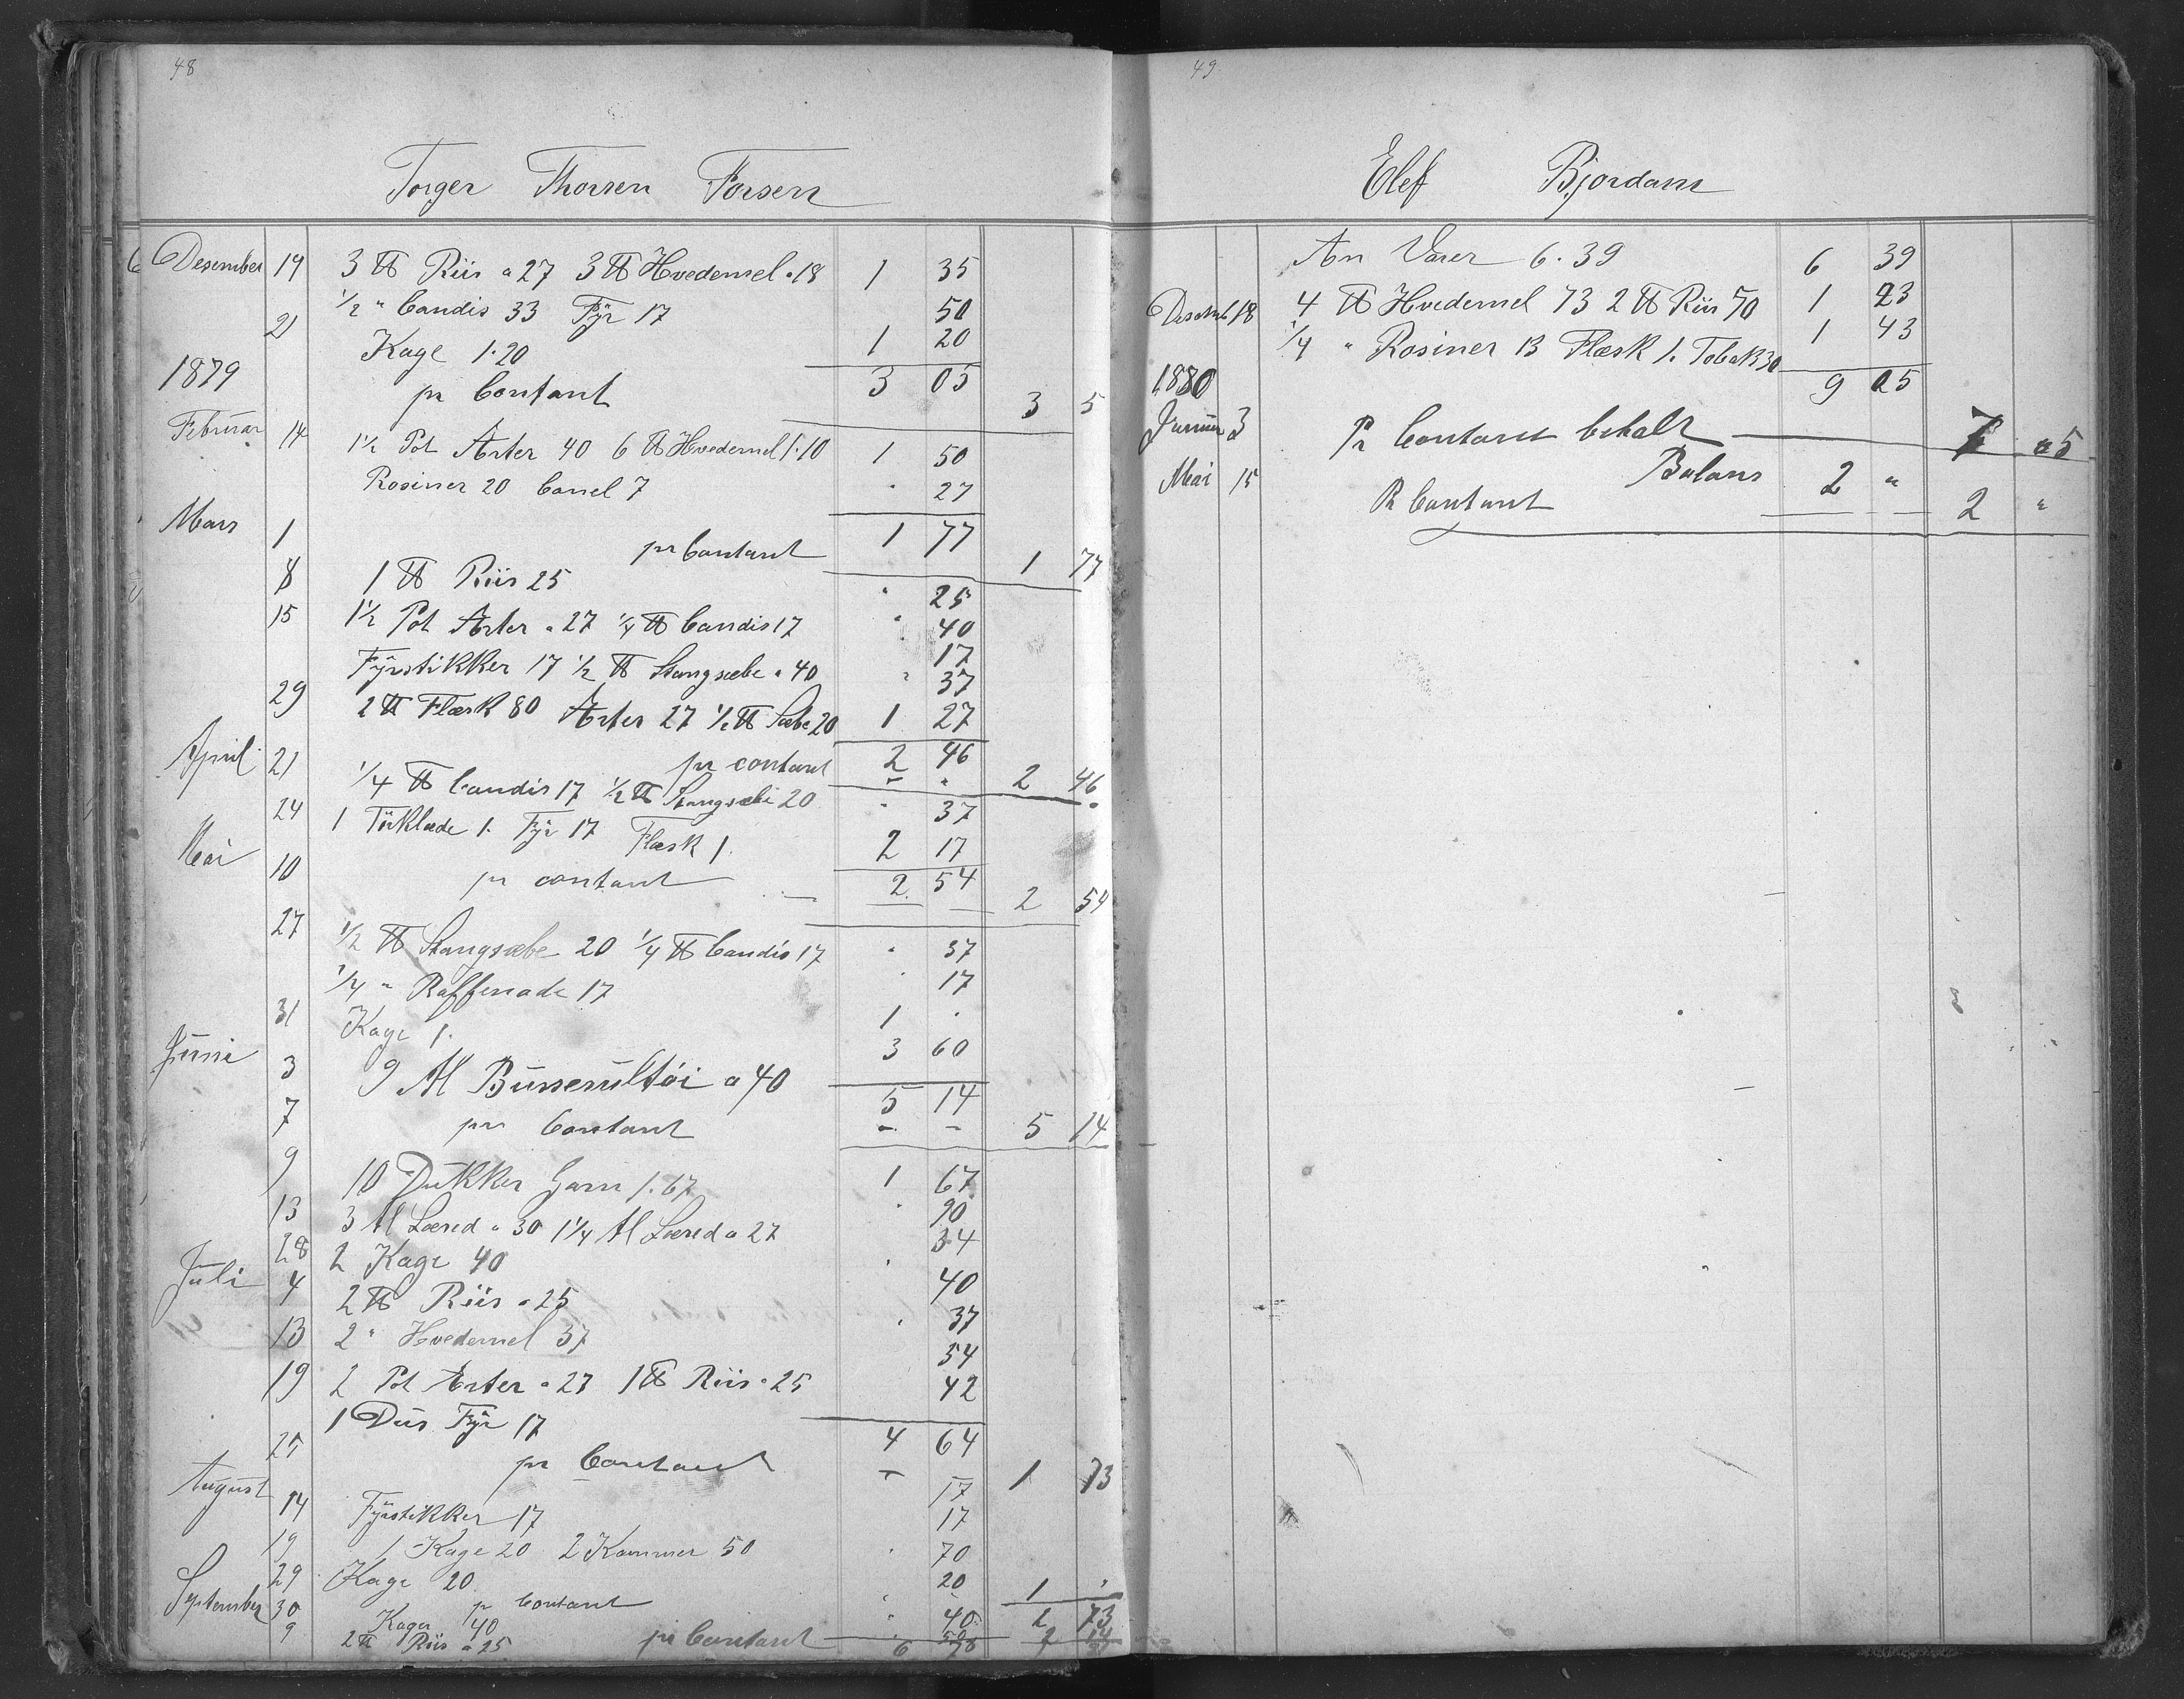 48
Torger Thorsen Forsen
Desember 14 3 ℔ Riis a 27 3 ℔ Hvedemel a 18 1 35
1/2 " Candis 33 Fÿr 17 50
21 Kage 1.20 1 20
1879 pr Contant 3 05 3 5
Februar 14 1 1/2 Pot Ærter 40 6 ℔ Hvedemel 1.10 1 50
Rosiner 20 Canel 7 " 27
Mars 1 pr Contant 1 77 1 77
8 1 ℔ Riis 25 " 25
15 1 1/2 Pot Ærter a 27 1/4 ℔ Candis 17 " 40
17
Fÿrstikker 17 1/2 ℔ Stangsæbe a 40 " 37
29 2 ℔ Flæsk 80 Ærter 27 1/2 ℔ Sæbe 20 1 27
April 21 pr contant 2 46 2 46
1/4 ℔ Candis 17 1/2 ℔ Stangsæbe 20 " 37
24 1 Törklæde 1. Fÿr 17 Flæsk 1. 2 17
Mai 10 pr contant 2. 54 2 54
27 1/2 ℔ Stangsæbe 20 1/4 ℔ Candis 17 " 37
1/4 " Raffenade 17 " 17
31 Kage 1. 1 "
Juni 3 9 Al Bussesultöi a 40 3 60
7 pr Contant 5 14 5 14
9 10 Dukker Garn 1.67 1 67
13 3 Al Lærred a 30 1 1/4 Al Lærred a 27 " 90
34
28 2 Kage 40 " 40
Juli 4 2 ℔ Riis a 25
13 2 " Hvedemel 37 " 37
54
19 2 Pot Ærter a 27 1 ℔ Riis a 25 42
1 Dus Fÿr 17
25 pr Contant 4 64 1 73
17
August 14 Fÿrstikker 17 17
19 1 Kage 20 2 Kammer 50 " 70
29 Kage 20 20
30 pr Contant 1 "
September Kager 40 " 40 2 73
9 2 ℔ Riis a 25 pr Contant 50
6 78
49
Elef Bjordam
An Varer 6.39 6 39
Desemb 18 4 ℔ Hvedemel 73 2 ℔ Riis 50 1 23
1/4 " Rosiner 13 Flæsk 1. Tobak 30 1 43
1880 9 05
Januar 3 Pr Contant betalt 7 05
Balans 2 "
Mai 15 Pr Contant 2 "